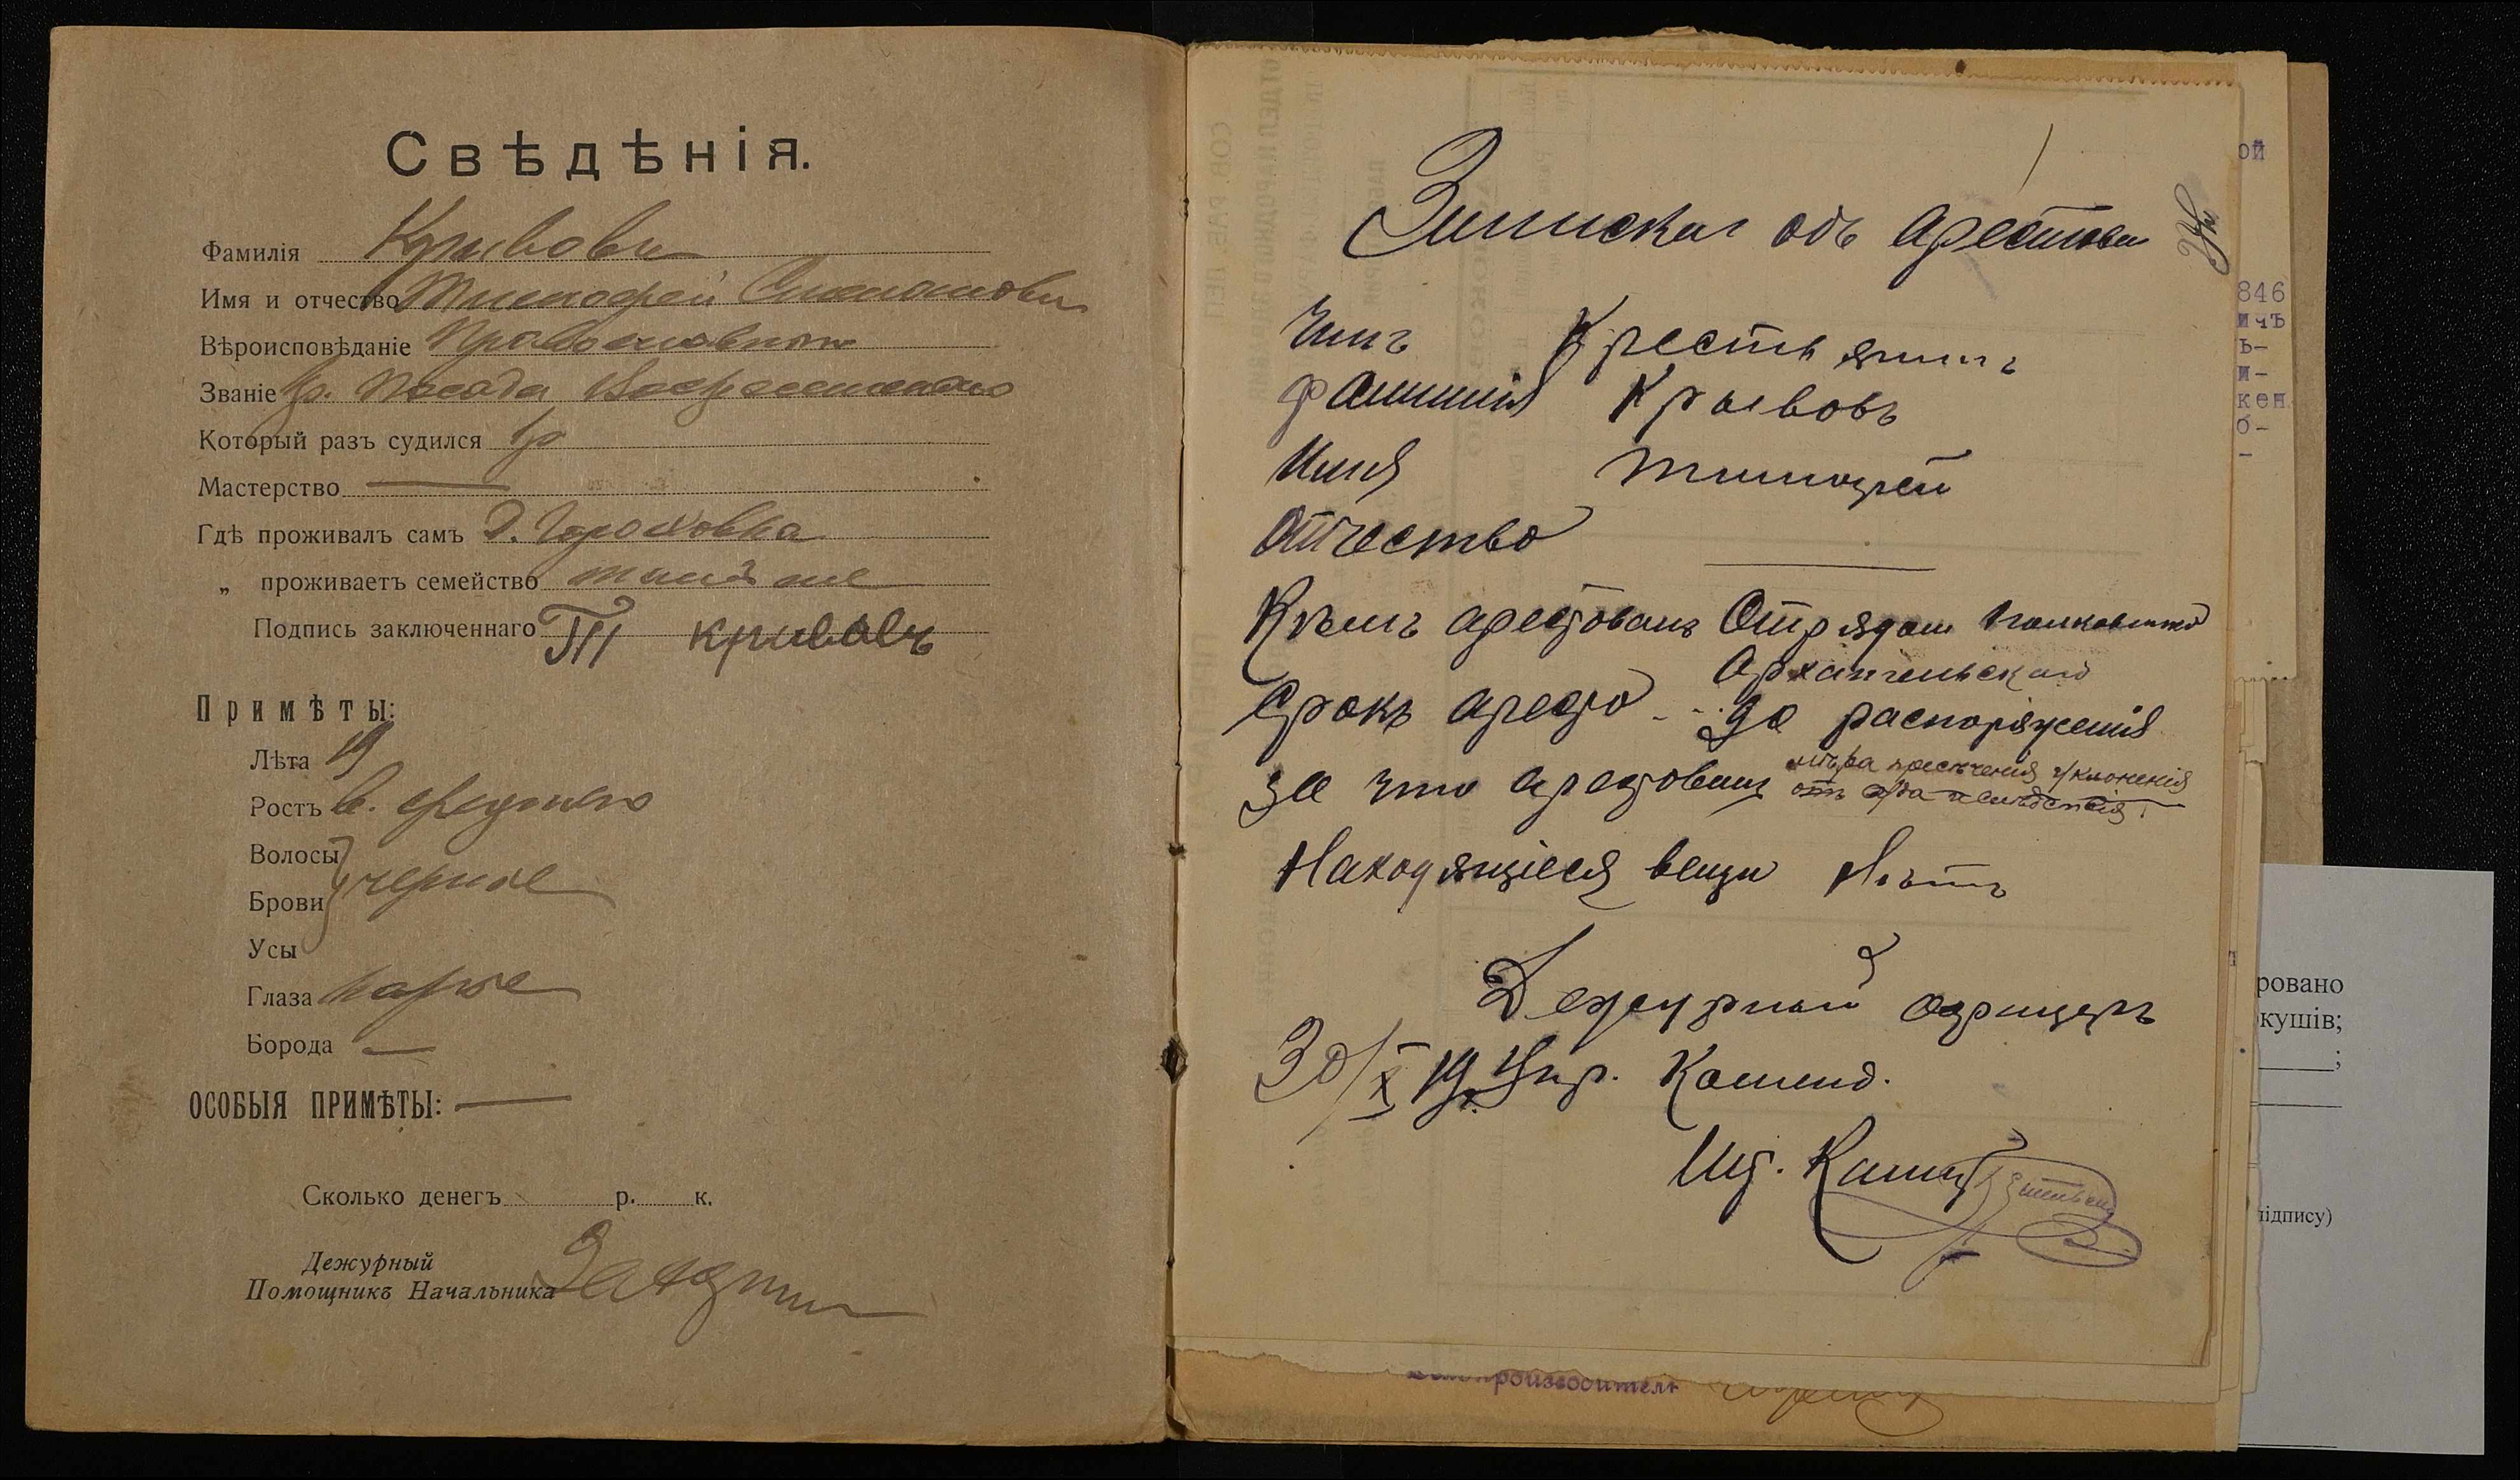 Свѣдѣнія.
Фамилія Кривовъ
Имя и отчество Тимофей
Вѣроисповѣданіе Православный
Званіе гр. Посада Воскресенскаго
Который разъ судился 1 р
Мастерство —
Гдѣ проживалъ самъ Д. Гороховка
„ проживаетъ семейство тамъ же
Подпись заключеннаго Т кривовъ
Примѣты:
Лѣта 19
Ростъ в. средняго
Волосы
Брови черные
Усы
Глаза Каріе
Борода —
ОСОБЫЯ ПРИМѢТЫ: —
Сколько денегъ р. к.
Дежурный
Помощникъ Начальника
Записка объ арестован
Чинъ Крестьянинъ
Фамилія Крывовъ
Имя Тимофей
Отчество —
Кѣмъ арестованъ Отрядом Полковника
Архангельскаго
Срокъ ареста до распоряженія
За что арестованъ мѣра пресѣченія уклоненія
отъ суда и слѣдствія
Находящіеся вещи Нѣтъ
Дежурный офицеръ
30/X 19 г. Упр. Коменд.
ой
846
ичъ
ь-
и-
кен
б-
-
ровано
кушів;
;
підпису)
производитель